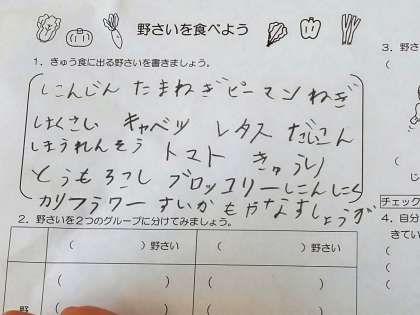 野さいを食べよう
1．きゅう食に出る野さいを書きましょう。
にんじん たまねぎ ピーマン ねぎ
はくさい キャベツ レタス だいこん
ほうれんそう トマト きゅうり
とうもろこし ブロッコリー にんにく
カリフラワー すいか もやし なす しょうが
2．野さいを2つのグループに分けてみましょう。
（　　　　）野さい （　　　　）野さい
（　　　　） （　　　　）
野 （　　　　） （　　　　）
3．野さ
（
じ
チェック
4．自分
きてい
（
（
（